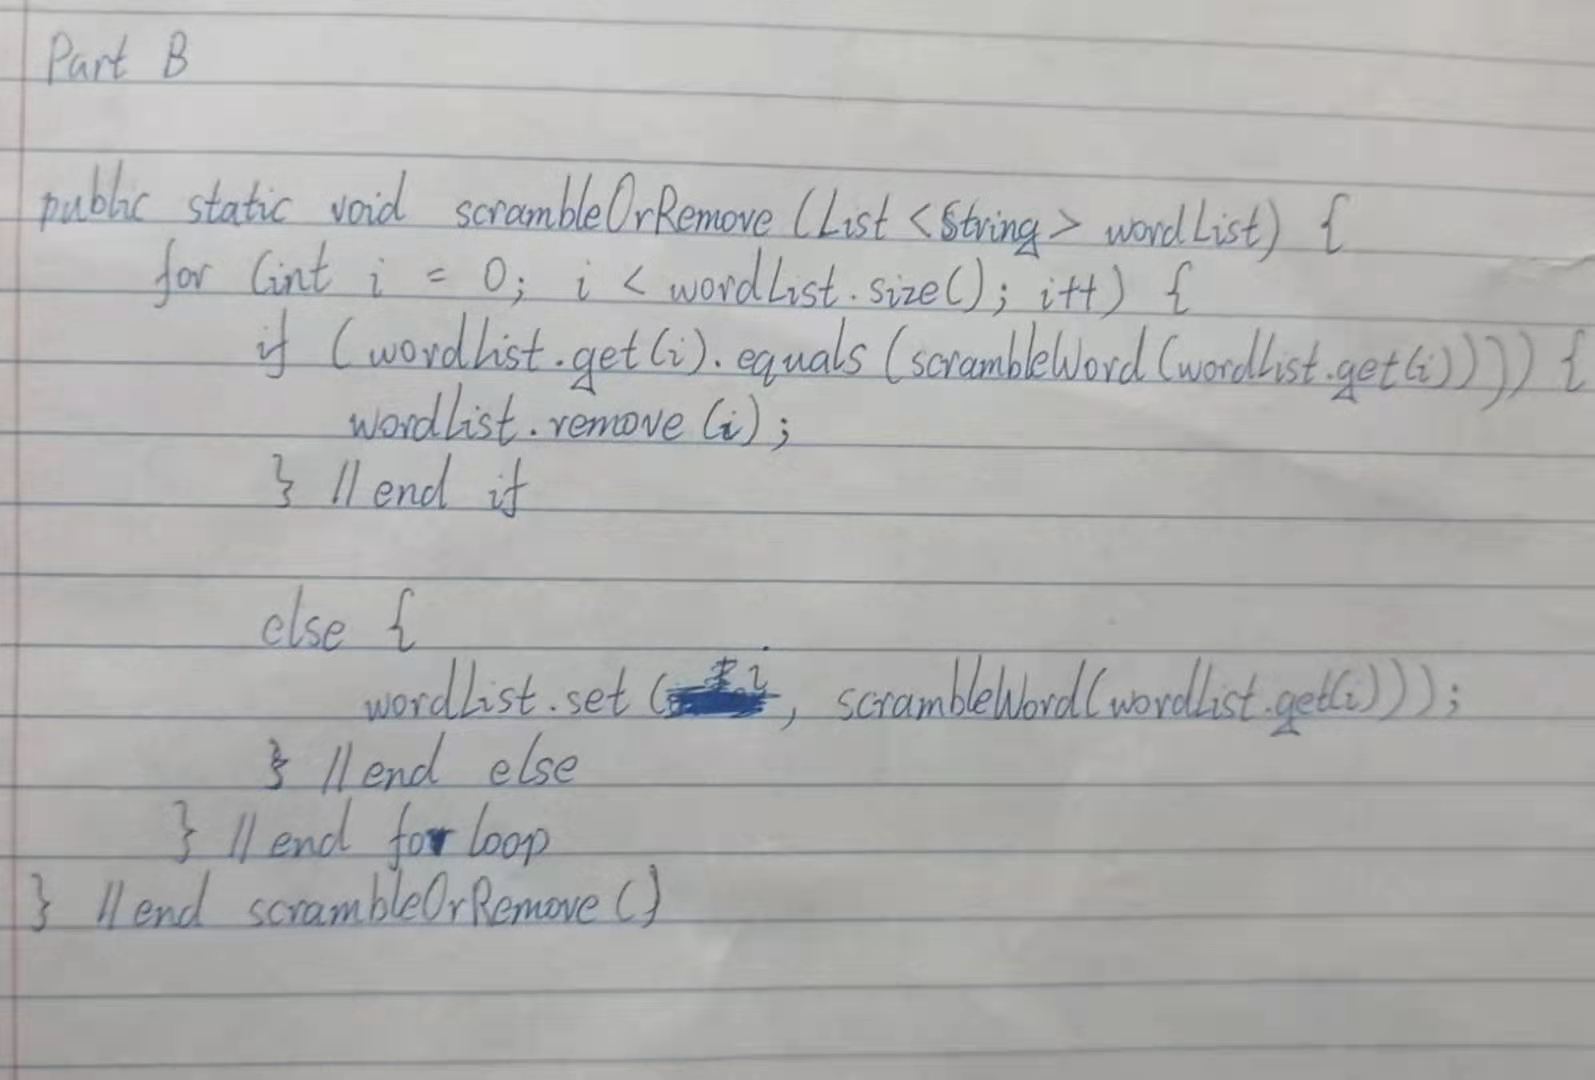 Part B
public static void scrambleOrRemove (List <String> wordList) {
for (int i = 0; i < wordList.size(); i++) {
if (wordList.get(i).equals (scrambleWord (wordList.get(i)))) {
wordList.remove (i);
} //end if
else {
wordList.set (i, scrambleWord(wordList.get(i)));
} //end else
} //end for loop
} //end scrambleOrRemove ()